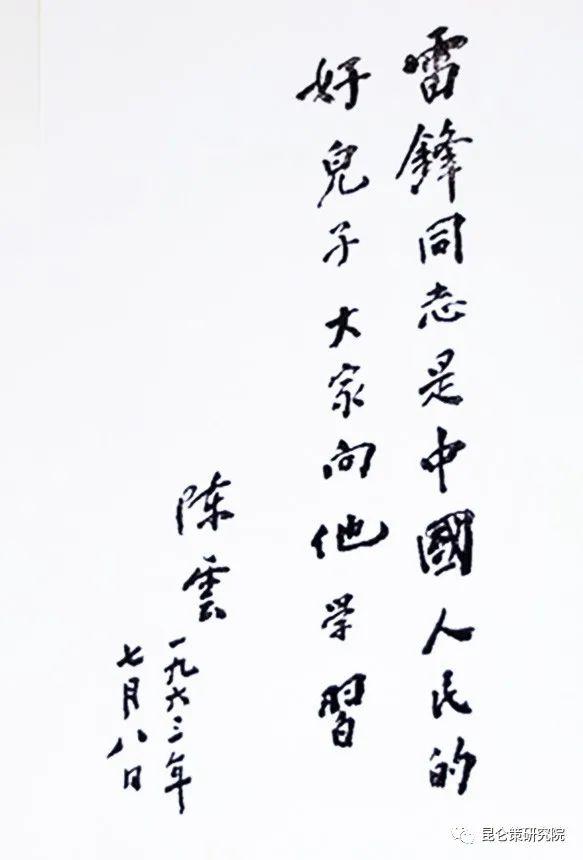 雷鋒同志是中國人民的
好兒子大家向他学習
陈雲
一九六三年
七月八日
昆仑策研究院